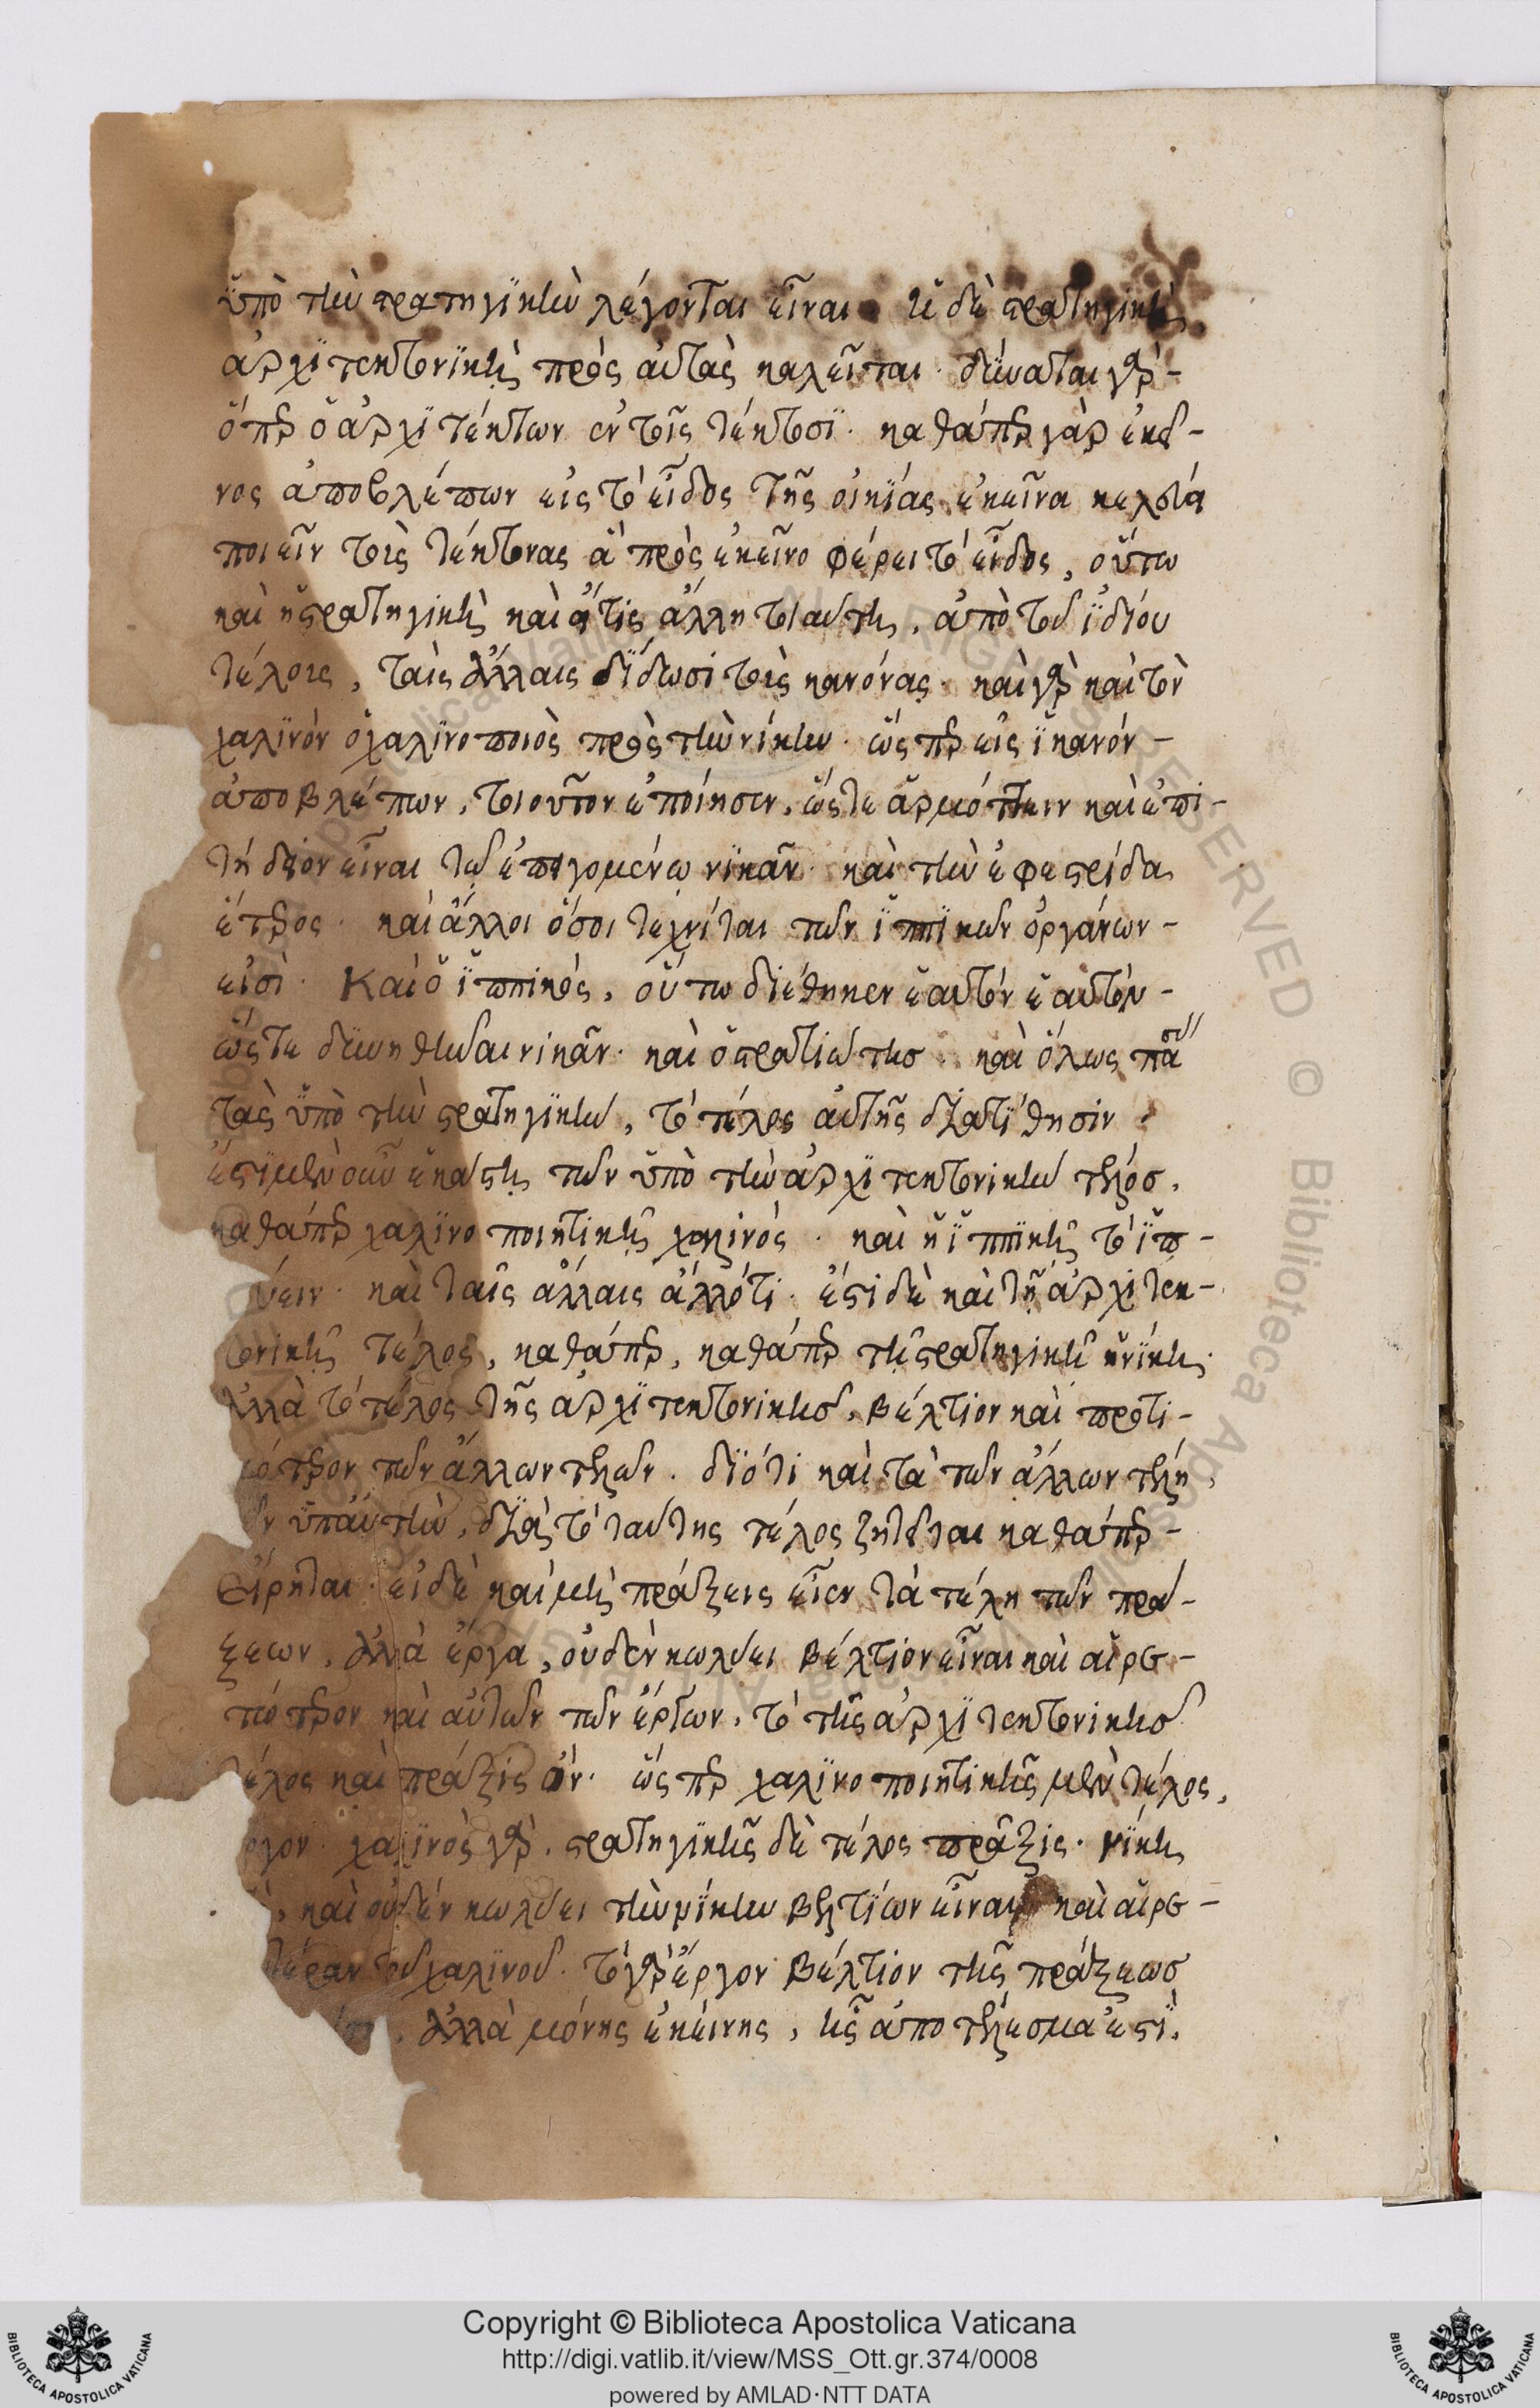 ὑπὸ τὴν στρατηγικὴν λέγονται εἶναι· ἡ δὲ στρατηγικὴ
ἀρχιτεκτονικὴ πρὸς αὐτὰς καλεῖται· δύναται γὰρ-
ὅπερ ὁ ἀρχιτέκτων ἐν τοῖς τέκτοσι· καθάπερ γὰρ ἐκεῖ-
νος ἀποβλέπων εἰς τὸ εἶδος τῆς οἰκίας ἐκεῖνα κελεύει
ποιεῖν τοὺς τέκτονας ἃ πρὸς ἐκεῖνο φέρει τὸ εἶδος, οὕτω
καὶ ἡ στρατηγικὴ καὶ ἥτις ἄλλη τοιαύτη, ἀπὸ τοῦ ἰδίου
τέλους, ταῖς ἄλλαις δίδωσι τοὺς κανόνας· καὶ γὰρ καὶ τὸν
χαλινὸν ὁ χαλινοποιὸς πρὸς τὴν νίκην· ὥσπερ εἰς κανόν-
ἀποβλέπων, τοιοῦτον ἐποίησεν, ὥστε ἁρμόττειν καὶ ἐπι-
τήδειον εἶναι τῷ ἐπειγομένῳ νικᾶν· καὶ τὴν ἐφεστρίδα
ἕτερος· καὶ ἄλλοι ὅσοι τεχνίται τῶν ἱππικῶν ὀργάνων-
εἰσὶ· Καὶ ὁ ἱππικὸς, οὕτω διέθηκεν ἑαυτὸν ἑαυτὸν-
ὥστε δυνηθῆναι νικᾶν· καὶ ὁ στρατιώτησ· καὶ ὅλως πά
τας ὑπὸ τὴν στρατηγικὴν, τὸ τέλος αὐτῆς διατίθησιν·
ἔστι μὲν οὖν ἑκάστη τῶν ὑπὸ τὴν ἀρχιτεκτονικὴν τέλοσ,
καθάπερ χαλινοποιητικῇ χαλινός· καὶ ἡ ἱππικῇ τὸ ἱπ-
πεύειν· καὶ ταῖς ἄλλαις ἄλλό τι· ἔστι δὲ καὶ τῇ ἀρχιτεκ-
τονικῇ τέλος, καθάπερ, καθάπερ τῇ στρατηγικῇ ἡ νίκη·
ἀλλὰ τὸ τέλος τῆς ἀρχιτεκτονικῆσ, βέλτιον καὶ προτι-
μότερον τῶν ἄλλων τελῶν· διότι καὶ τὰ τῶν ἄλλων τέλη,
ὧν ὑπ' αὐτὴν, διὰ τὸ ταύτης τέλος ζητεῖται καθάπερ-
εἴρηται· εἰ δὲ καὶ μὴ πράξεις εἶεν τὰ τέλη τῶν πρά-
ξεων, ἀλλὰ ἔργα, οὐδὲν κωλύει βέλτιον εἶναι καὶ αἱρε-
τώτερον καὶ αὐτῶν τῶν ἔργων, τὸ τῆς ἀρχιτεκτονικῆσ
τέλος καὶ πράξις ὄν· ὥσπερ χαλινοποιητικῆς μὲν τέλος,
ἔργον· χαλινὸς γὰρ· στρατηγικῆς δὲ τέλος πρᾶξις· νίκη
, καὶ οὐδὲν κωλύει τὴν νίκην βελτίων εἶναι καὶ αἱρε-
τωτέραν τοῦ χαλινοῦ· τὸ γὰρ ἔργον βέλτιον τῆς πράξεωσ
. ἀλλὰ μόνης ἐκείνης, ἧς ἀποτέλεσμα ἐστὶ,